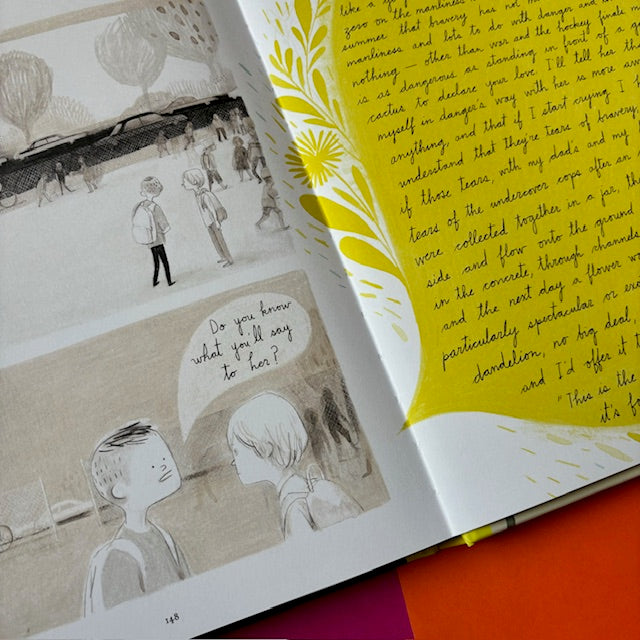 Do you know
what you'll say
to her?
148
like a
zero on the manliness
summer that bravery has not
manliness and lots to do with danger and
nothing — other than war and the hockey finals
is as dangerous as standing in front of a
cactus to declare your love. I'll tell her
myself in danger's way with her is more
anything, and that if I start crying I
understand that they're tears of bravery,
if those tears, with my dad's and my
tears of the undercover cops after an
were collected together in a jar, the
side and flow onto the ground
in the concrete, through channels
and the next day a flower
particularly spectacular or
dandelion, no big deal,
and I'd offer it
"This is the
it's